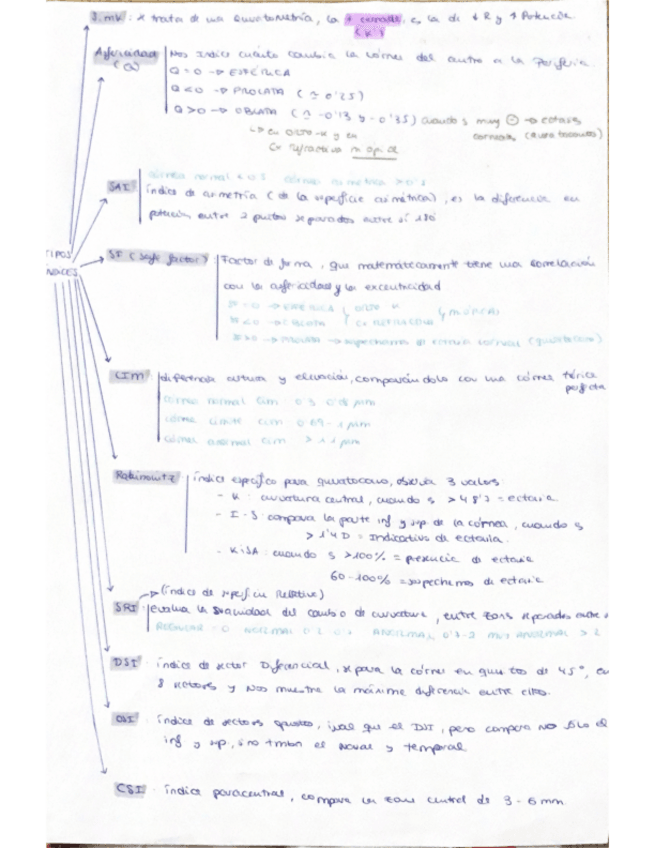 SimK : se trata de una queratometría, la + cerrada, es la de ↓ R y ↑ Potencia
(K)
Asfericidad (Q) Nos indica cuánto cambia la córnea del centro a la periferia.
Q = 0 → ESFÉRICA
Q < 0 → PROLATA (≃ 0'25)
Q > 0 → OBLATA (≃ -0'13 y -0'35) cuando es muy ⊖ → ectasia
↳ en orto-k y en corneal (queratocono)
Cx refractiva miopía
córnea normal < 0'5 córnea asimétrica > 0'5
SAI índice de asimetría (de la superficie asimétrica), es la diferencia en
potencia entre 2 puntos separados entre sí 180
TIPOS
ÍNDICES
SF (shape factor) : Factor de forma, que matemáticamente tiene una correlación
con la asfericidad y la excentricidad
SF = 0 → ESFÉRICA orto k
SF < 0 → OBLATA Cx REFRACTIVA
SF > 0 → PROLATA → sospechamos de ectasia corneal (queratocono)
CIM diferencia altura y elevación, comparándola con una córnea tórica
perfecta
córnea normal CIM 0'3 0'68 µm
córnea límite CIM 0'69 - 1 µm
córnea anormal CIM > 1'1 µm
Rabinowitz índice específico para queratocono, observa 3 valores:
- K : curvatura central, cuando es > 48'7 = ectasia
- I-S : compara la parte inf y sup. de la córnea, cuando es
> 1'4 D = Indicativo de ectasia.
- KISA : cuando es > 100% = presencia de ectasia
60-100% = sospechamos de ectasia
→ (índice de superficie Relativa)
SRI : evalúa la suavidad del cambio de curvatura, entre zonas separadas entre
REGULAR = 0 NORMAL ANORMAL MUY ANORMAL > 2
DSI índice de sector Diferencial, separa la córnea en quesitos de 45°, en
8 sectores y nos muestra la máxima diferencia entre ellos.
OSI : índice de sectores opuestos, igual que el DSI, pero compara no sólo el
inf y sup, sino tmbn el nasal y temporal
CSI : índice paracentral, compara la zona central de 3-6 mm